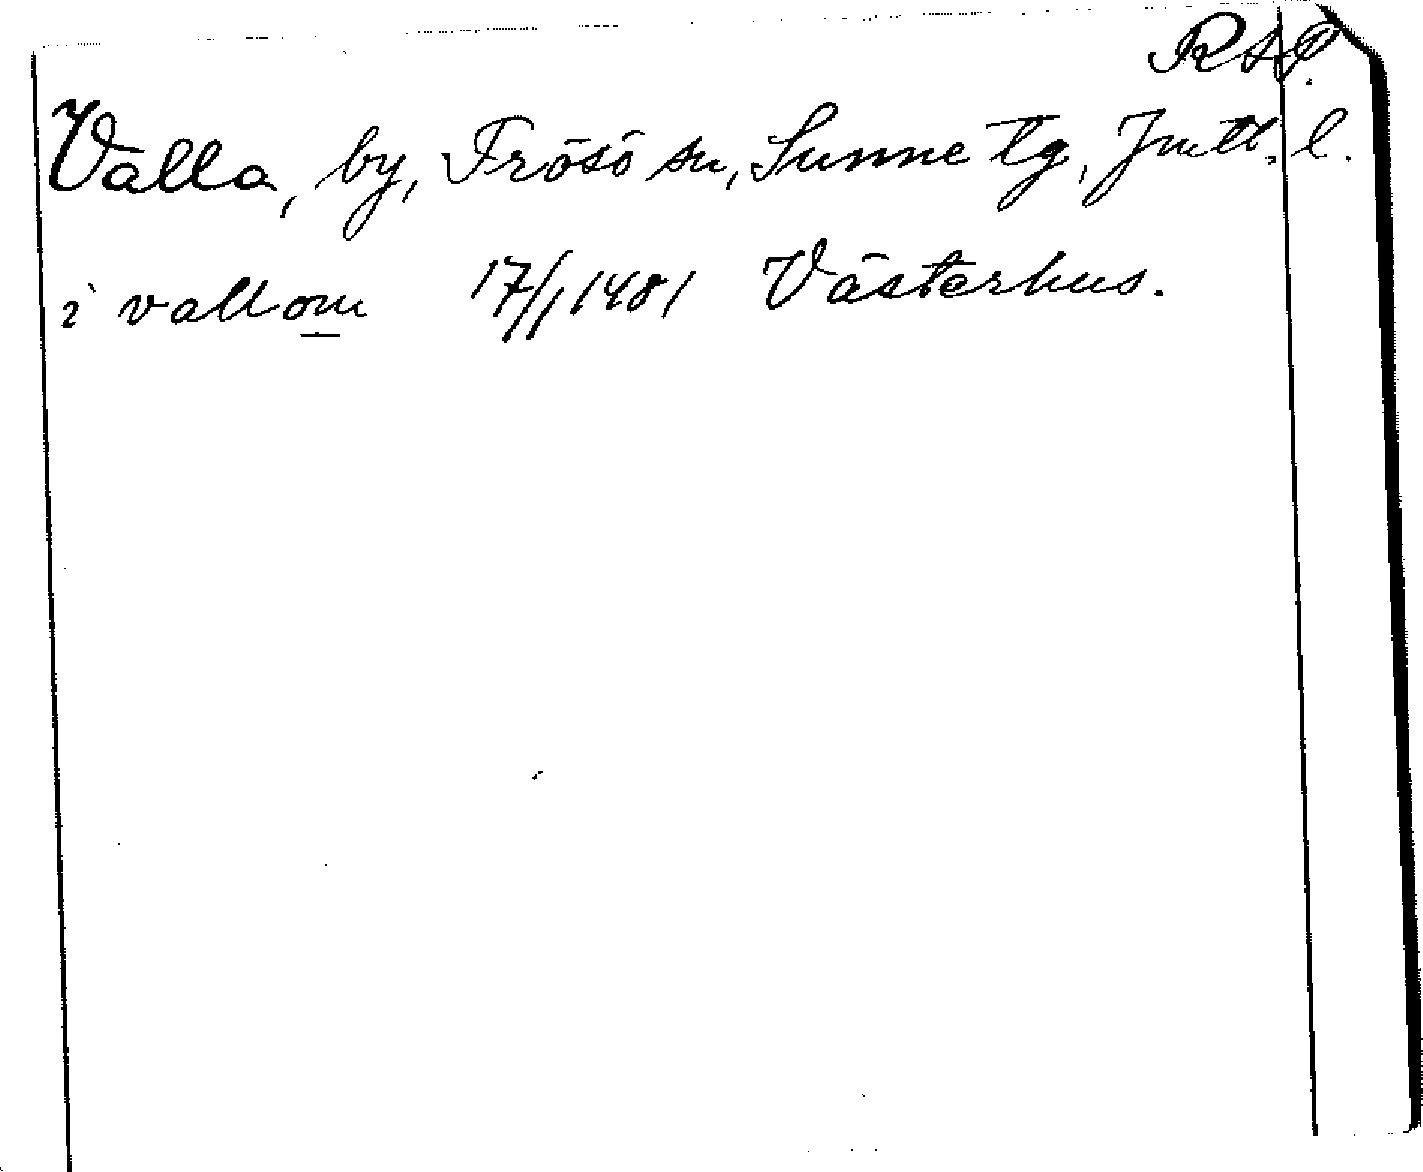 RAP.
Valla, by, Frösö sn, Sunne tg, Jmtl. l.
i vallom 17/1 1481 Västerhus.